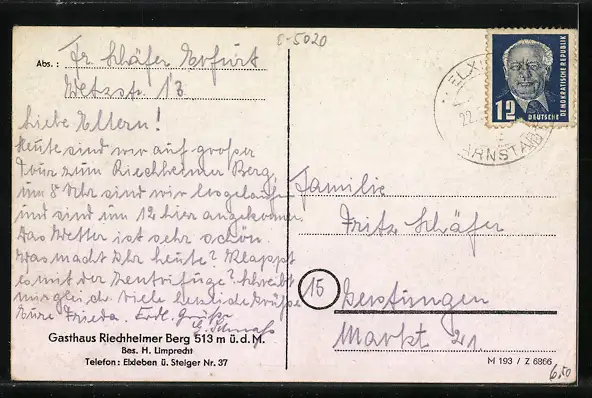 o-5020
Abs.: Fr. Schäfer Erfurt
Metzstr. 13.
Liebe Eltern!
Heute sind wir auf großer
Tour zum Riechheimer Berg,
um 8 Uhr sind wir losgelaufen
und sind um 12 hier angekommen.
Das Wetter ist sehr schön.
Was macht Ihr heute? Klappt
es mit der Zentrifuge? Schreibt
mir gleich. Viele herzliche Grüße
Eure Frieda. Erdl. Grüße
Gasthaus Riechheimer Berg 513 m ü. d. M.
Bes. H. Limprecht
Telefon: Elxleben ü. Steiger Nr. 37
ELX
22.
ARNSTA
12
DEUTSCHE
DEMOKRATISCHE REPUBLIK
Familie
Fritz Schäfer
15
Gerstungen
Markt 21
M 193 / Z 6866
6,50